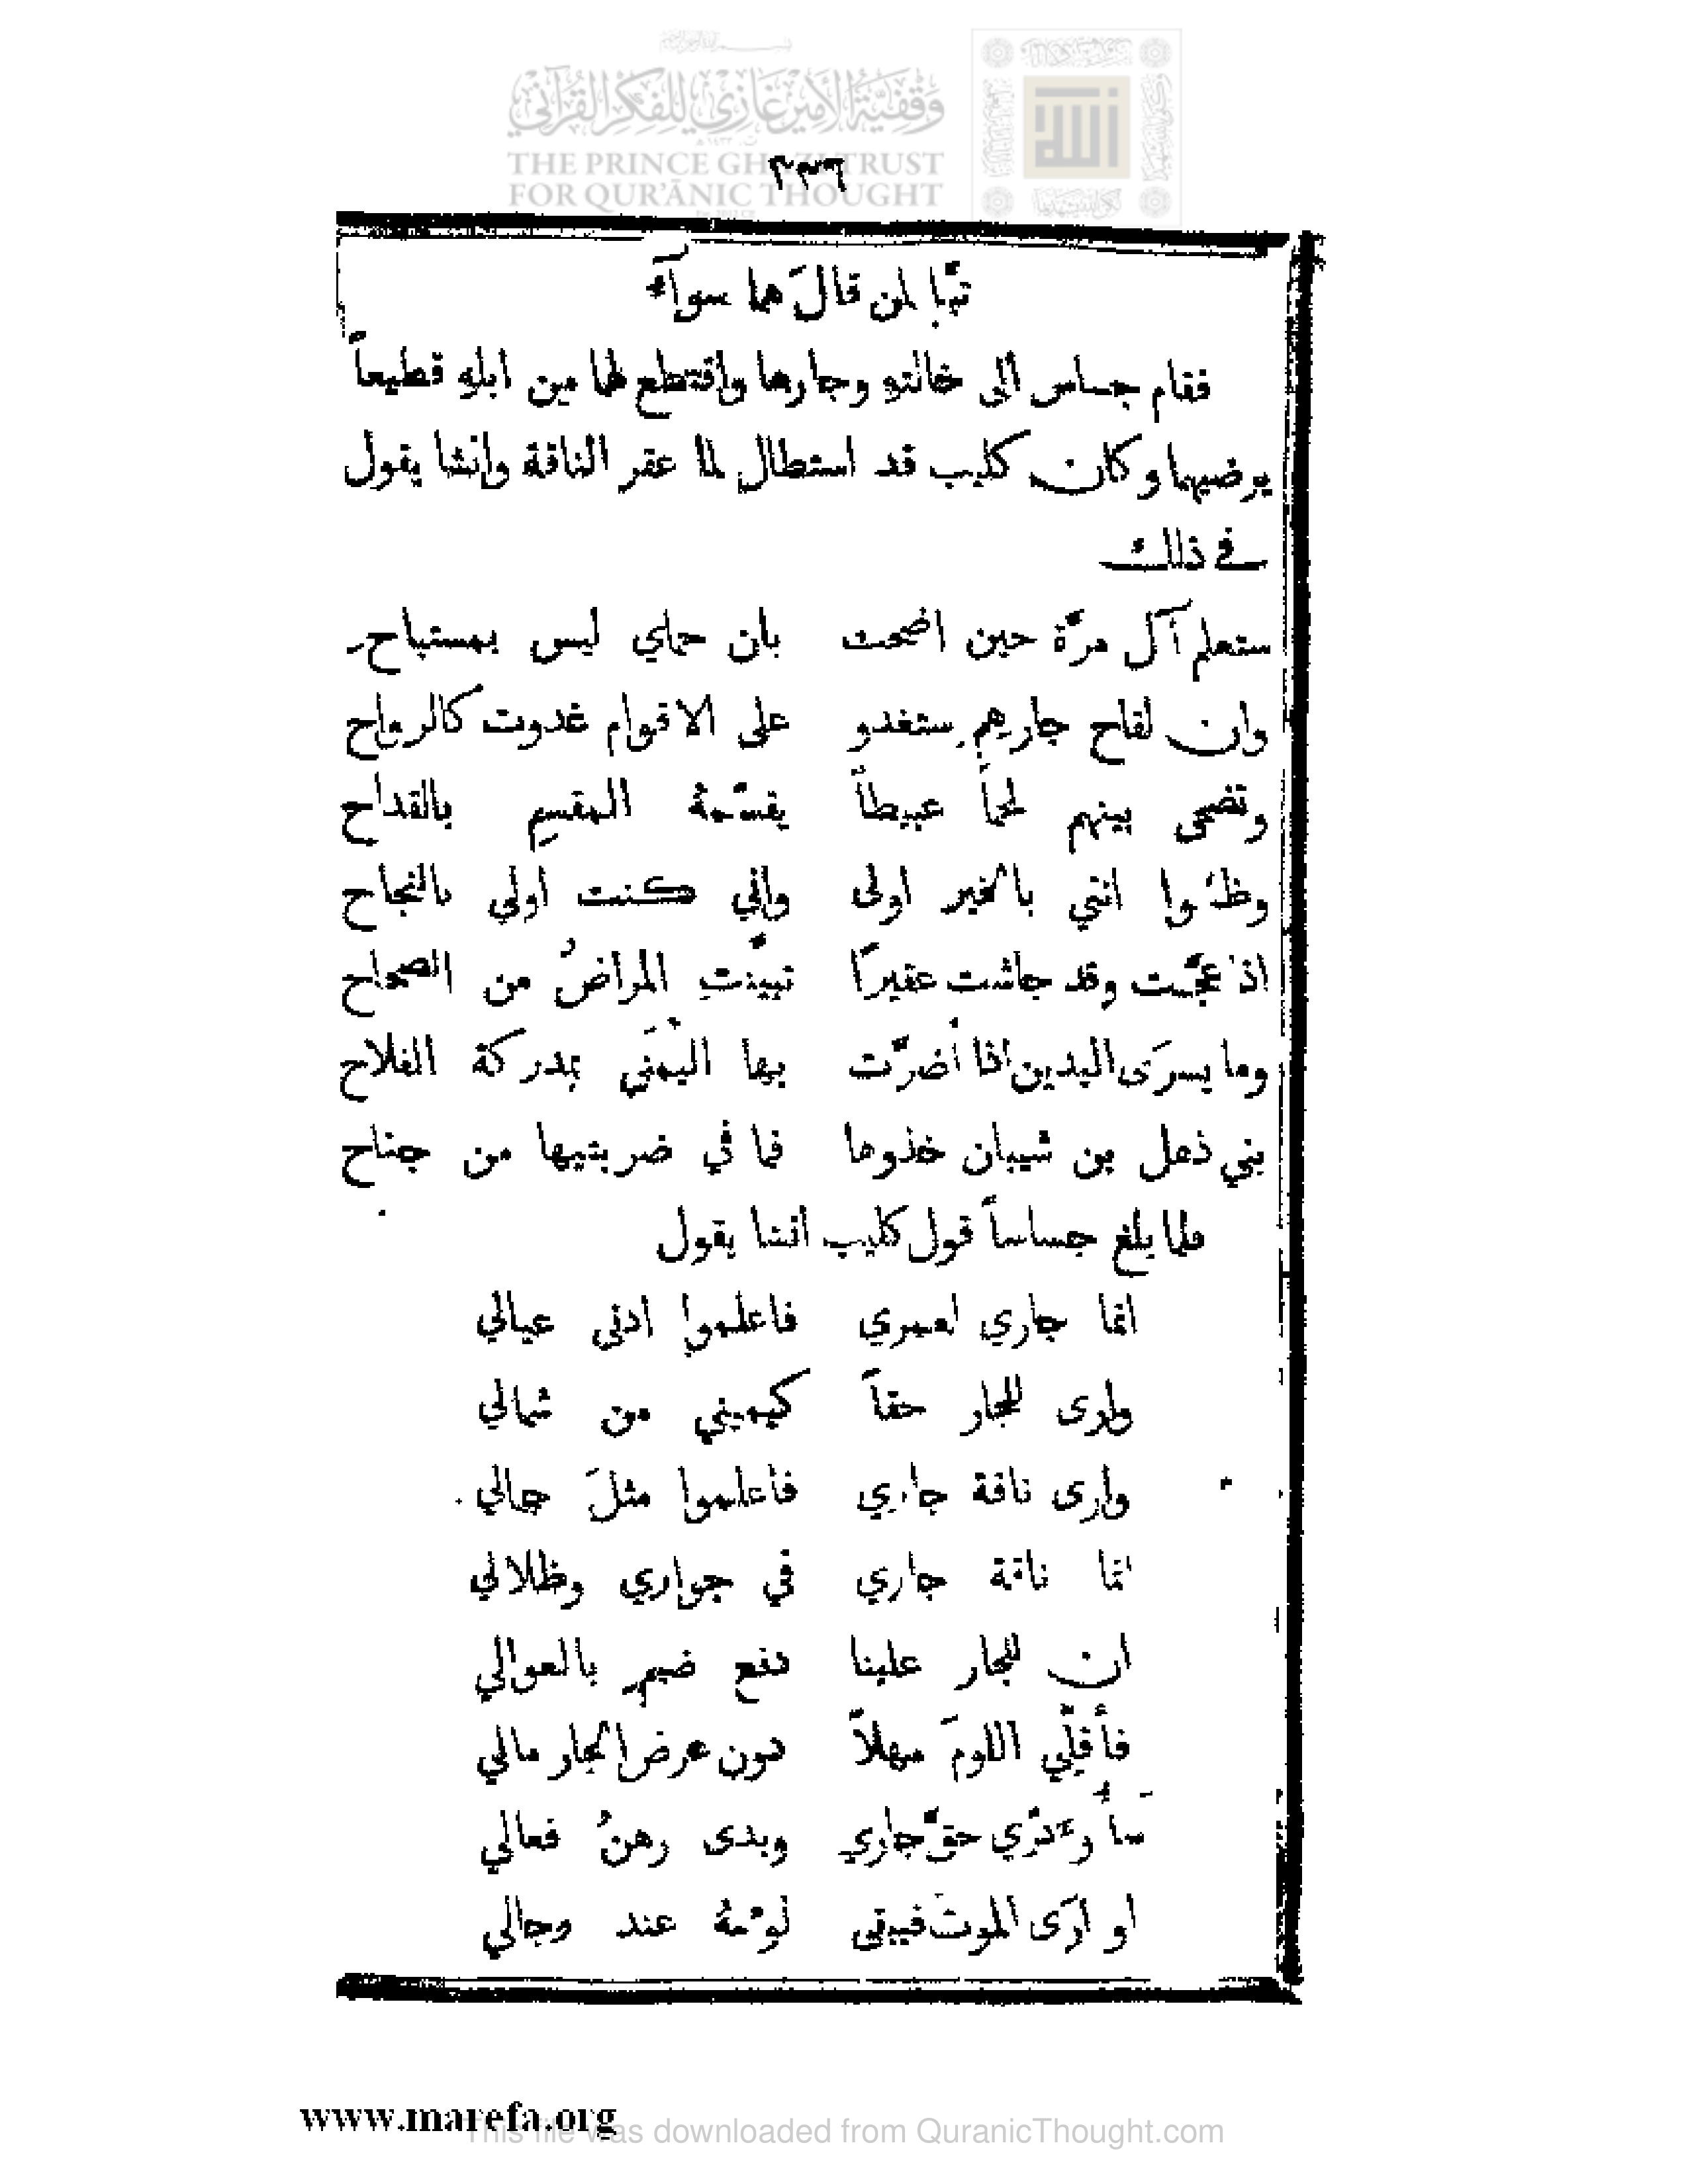 وقفية الأمير غازي للفكر القرآني
THE PRINCE GHAZI TRUST
FOR QUR'ĀNIC THOUGHT
٢٣٦
تبًّا لمن قالَ هما سوآء
فقام جساس الى خالتهِ وجارها واقتطع لهما من ابلهِ قطيعاً
يرضيهما وكان كليب قد استطال لما عقر الناقة وانشا يقول
في ذلك
ستعلم آل مرَّة حين اضحت بان حماي ليس بمستباحِ
وان لقاح جارهمِ ستغدو على الاقوام غدوت كالرواح
وتضحى بينهم لحماً عبيطاً يقسّمهُ المقسم بالقداح
وظنُّوا انني بالخير اولى واني كنت اولى بالنجاح
اذا عجّت وقد جاشت عقيرًا تبيَّنتِ المراضُ من الصحاح
وما يسرَى اليدين اذا أضرَّت بها اليمنَى بمدركة الفلاح
بني ذهل بن شيبان خذوها فما في ضربتيها من جناح
فلما بلغ جساساً قول كليب انشا يقول
انما جاري لعمري فاعلموا ادنى عيالي
وارى للجار حقاً كيميني من شمالي
وارى ناقة جاري فاعلموا مثلَ جمالي
انما ناقة جاري في جواري وظلالي
ان للجار علينا دفع ضيمٍ بالعوالي
فأقلّي اللومَ مهلاً دون عرض الجار مالي
حقَّ جاري ويدى رهنُ فعالي
او ارَى الموت فيبقى لومهُ عند رجالي
www.marefa.org
This file was downloaded from QuranicThought.com